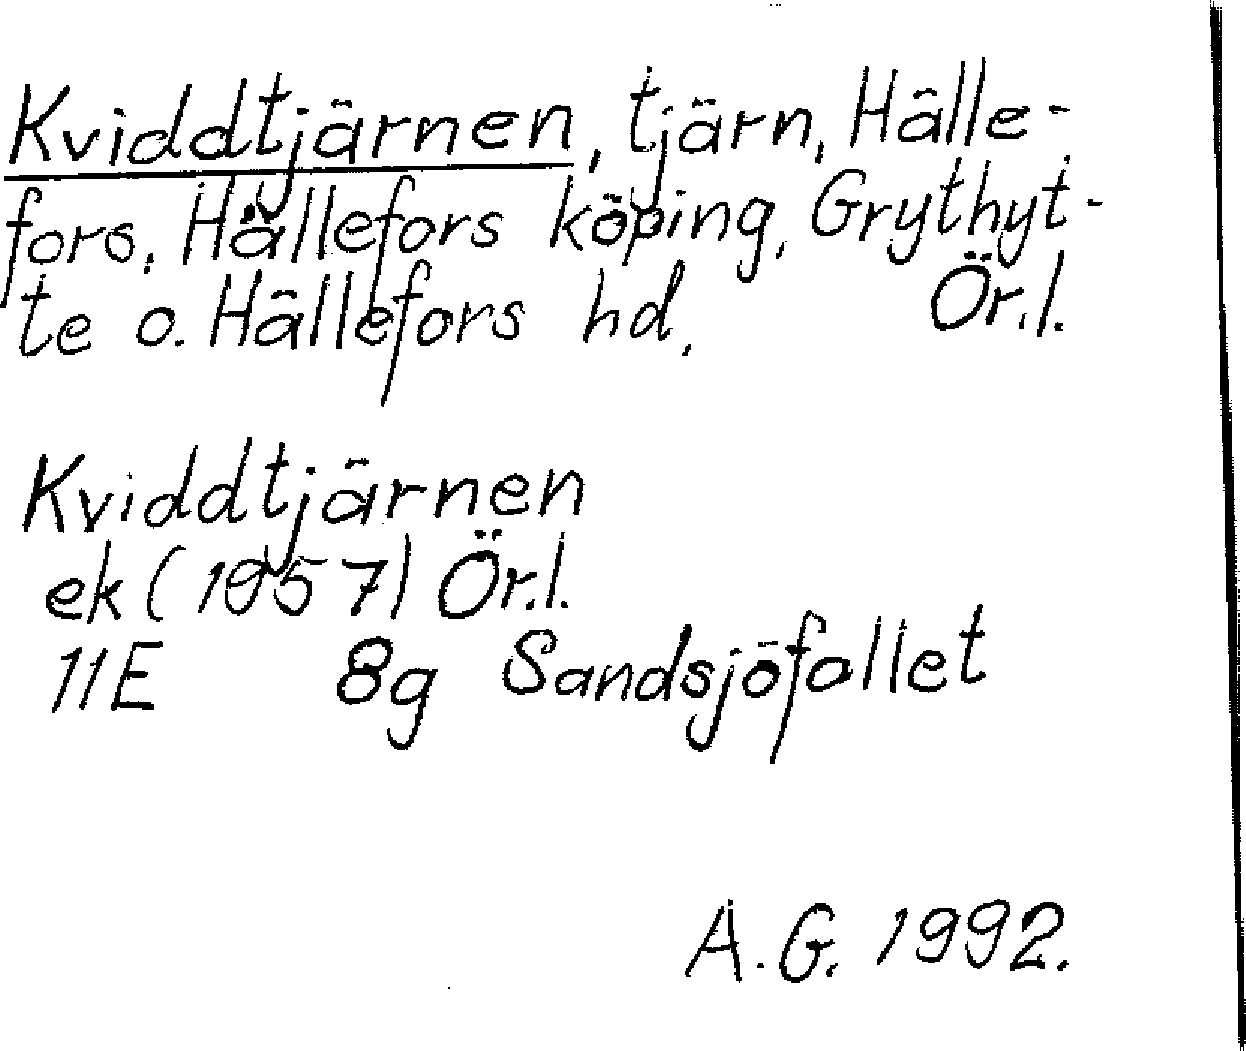 Kviddtjärnen, tjärn, Hälle-
fors, Hällefors köping, Grythyt-
te o. Hällefors hd, Ör.l.
Kviddtjärnen
ek (1957) Ör.l.
11E 8g Sandsjöfallet
A.G. 1992.